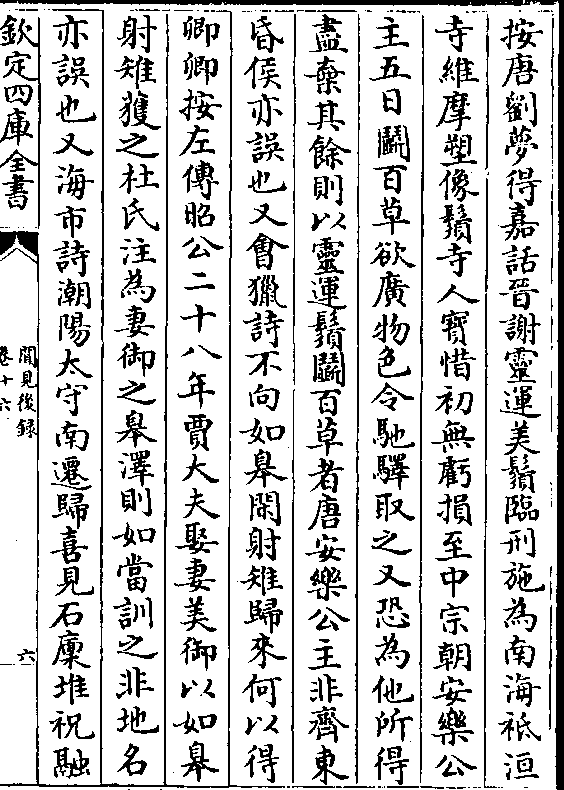 按唐劉夢得嘉話晉謝靈運美鬚臨刑施為南海祇洹
寺維摩塑像鬚寺人寳惜初無虧損至中宗朝安樂公
主五日鬭百草欲廣物色令馳驛取之又恐為他所得
盡棄其餘則以靈運鬚鬭百草者唐安樂公主非齊東
昏侯亦誤也又會獵詩不向如皋閑射雉歸來何以得
卿卿按左傳昭公二十八年賈大夫娶妻美御以如皋
射雉獲之杜氏注為妻御之皋澤則如當訓之非地名
亦誤也又海市詩潮陽太守南遷歸喜見石廩堆祝融
欽定四庫全書
聞見後録
卷十六
六